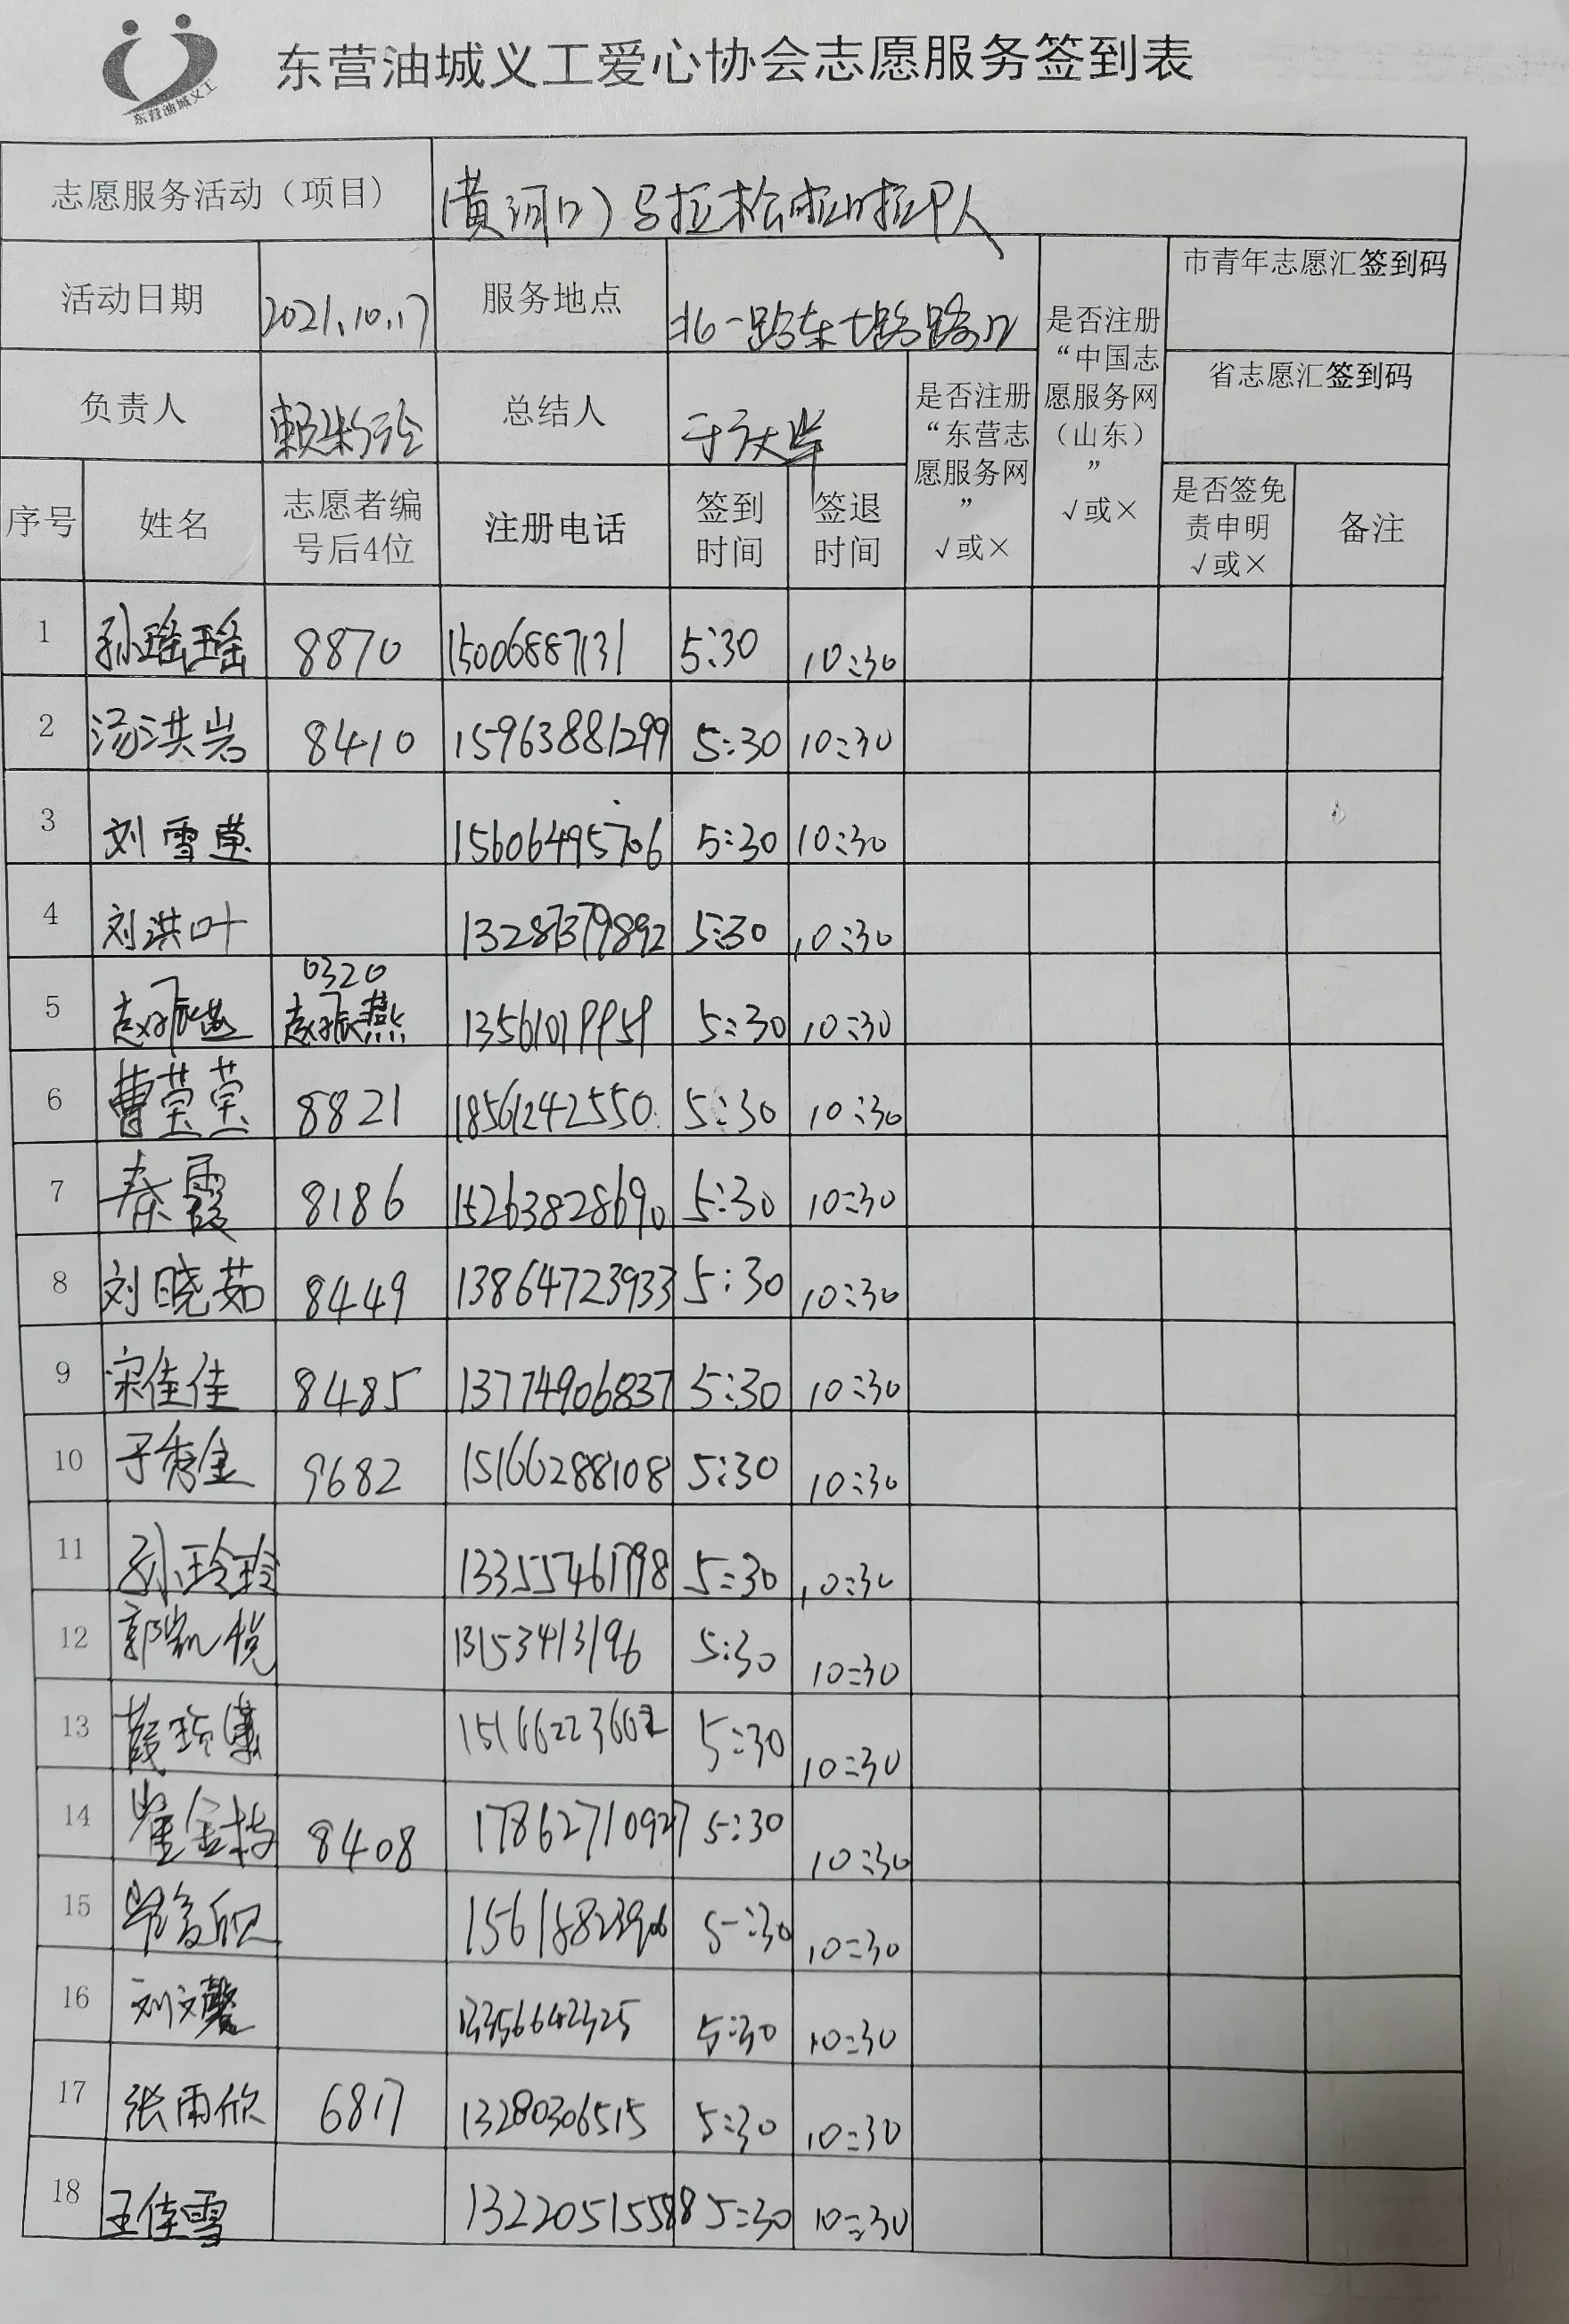 东营油城义工
东营油城义工爱心协会志愿服务签到表
志愿服务活动（项目） （黄河口）马拉松啦啦啦甲人
活动日期 2021.10.17 服务地点 北一路东七路路口 是否注册“中国志愿服务网（山东）” √或× 市青年志愿汇签到码
负责人 总结人 于庆学 是否注册“东营志愿服务网” √或× 省志愿汇签到码
序号 姓名 志愿者编号后4位 注册电话 签到时间 签退时间 是否签免责申明 √或× 备注
1 孙瑶瑶 8870 15006887131 5:30 10:30
2 汤洪岩 8410 15963881299 5:30 10:30
3 刘雪莹 15606495706 5:30 10:30
4 刘洪叶 13287379892 5:30 10:30
5 赵振燕 0320 赵振燕 13561019959 5:30 10:30
6 曹莹莹 8821 18561242550 5:30 10:30
7 秦霞 8186 15263828690 5:30 10:30
8 刘晓茹 8449 13864723933 5:30 10:30
9 宋佳佳 8485 13774906837 5:30 10:30
10 于秀金 9682 15166288108 5:30 10:30
11 孙玲玲 13355461798 5:30 10:30
12 郭凯悦 13153413196 5:30 10:30
13 15166223662 5:30 10:30
14 崔金枝 8408 17862710927 5:30 10:30
15 5:30 10:30
16 刘文馨 13356642325 5:30 10:30
17 张雨欣 6817 13280306515 5:30 10:30
18 王佳雪 13220515588 5:30 10:30